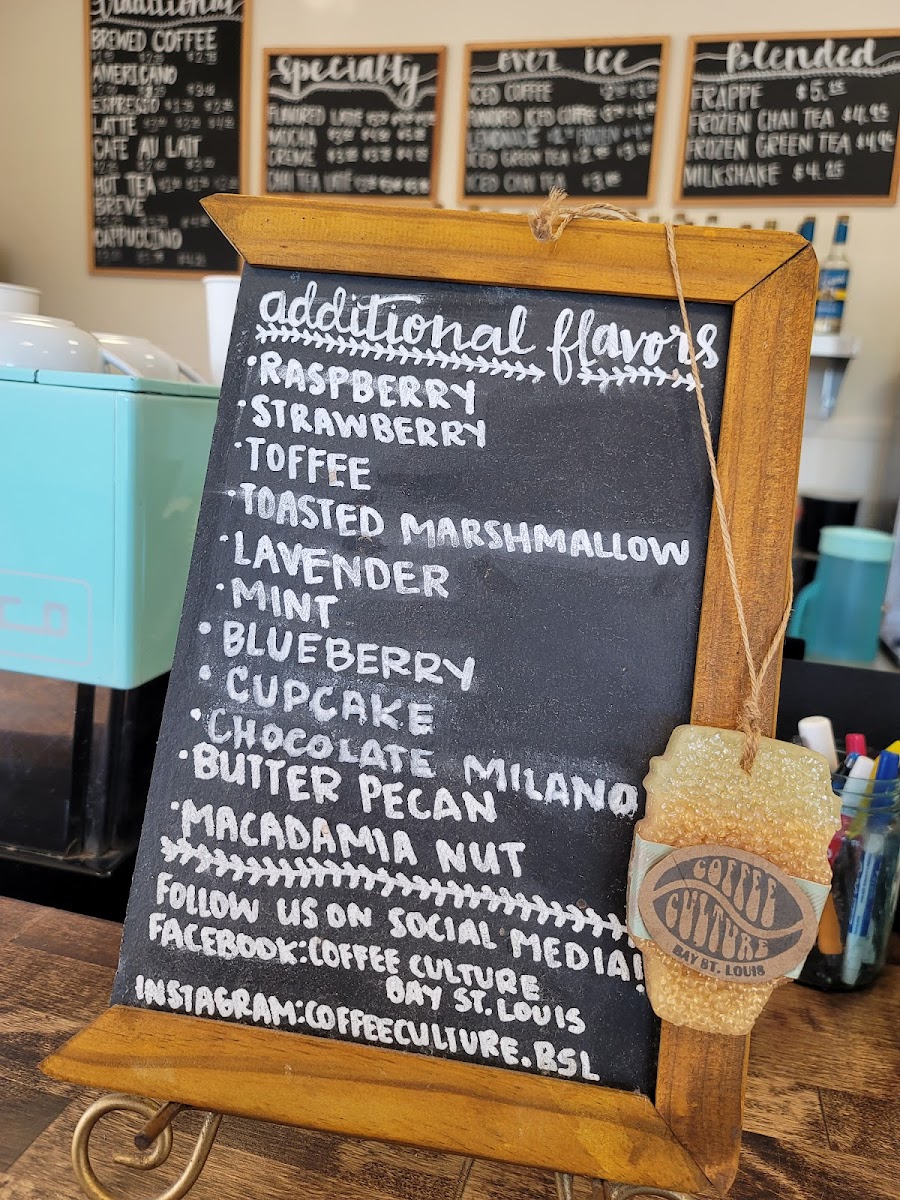 traditional
BREWED COFFEE
AMERICANO
ESPRESSO
LATTE
CAFE AU LAIT
HOT TEA
BREVE
CAPPUCCINO
Specialty
FLAVORED LATTE
MOCHA
CREME
CHAI TEA LATTE
over ice
ICED COFFEE
FLAVORED ICED COFFEE
LEMONADE
FROZEN
ICED GREEN TEA
ICED CHAI TEA
Blended
FRAPPE
FROZEN CHAI TEA $4.95
FROZEN GREEN TEA $4.95
MILKSHAKE $4.25
additional flavors
•RASPBERRY
•STRAWBERRY
•TOFFEE
•TOASTED MARSHMALLOW
•LAVENDER
•MINT
•BLUEBERRY
•CUPCAKE
•CHOCOLATE MILANO
•BUTTER PECAN
•MACADAMIA NUT
FOLLOW US ON SOCIAL MEDIA!
FACEBOOK:COFFEE CULTURE
BAY ST. LOUIS
INSTAGRAM:COFFEECULTURE.BSL
COFFEE
CULTURE
BAY ST. LOUIS